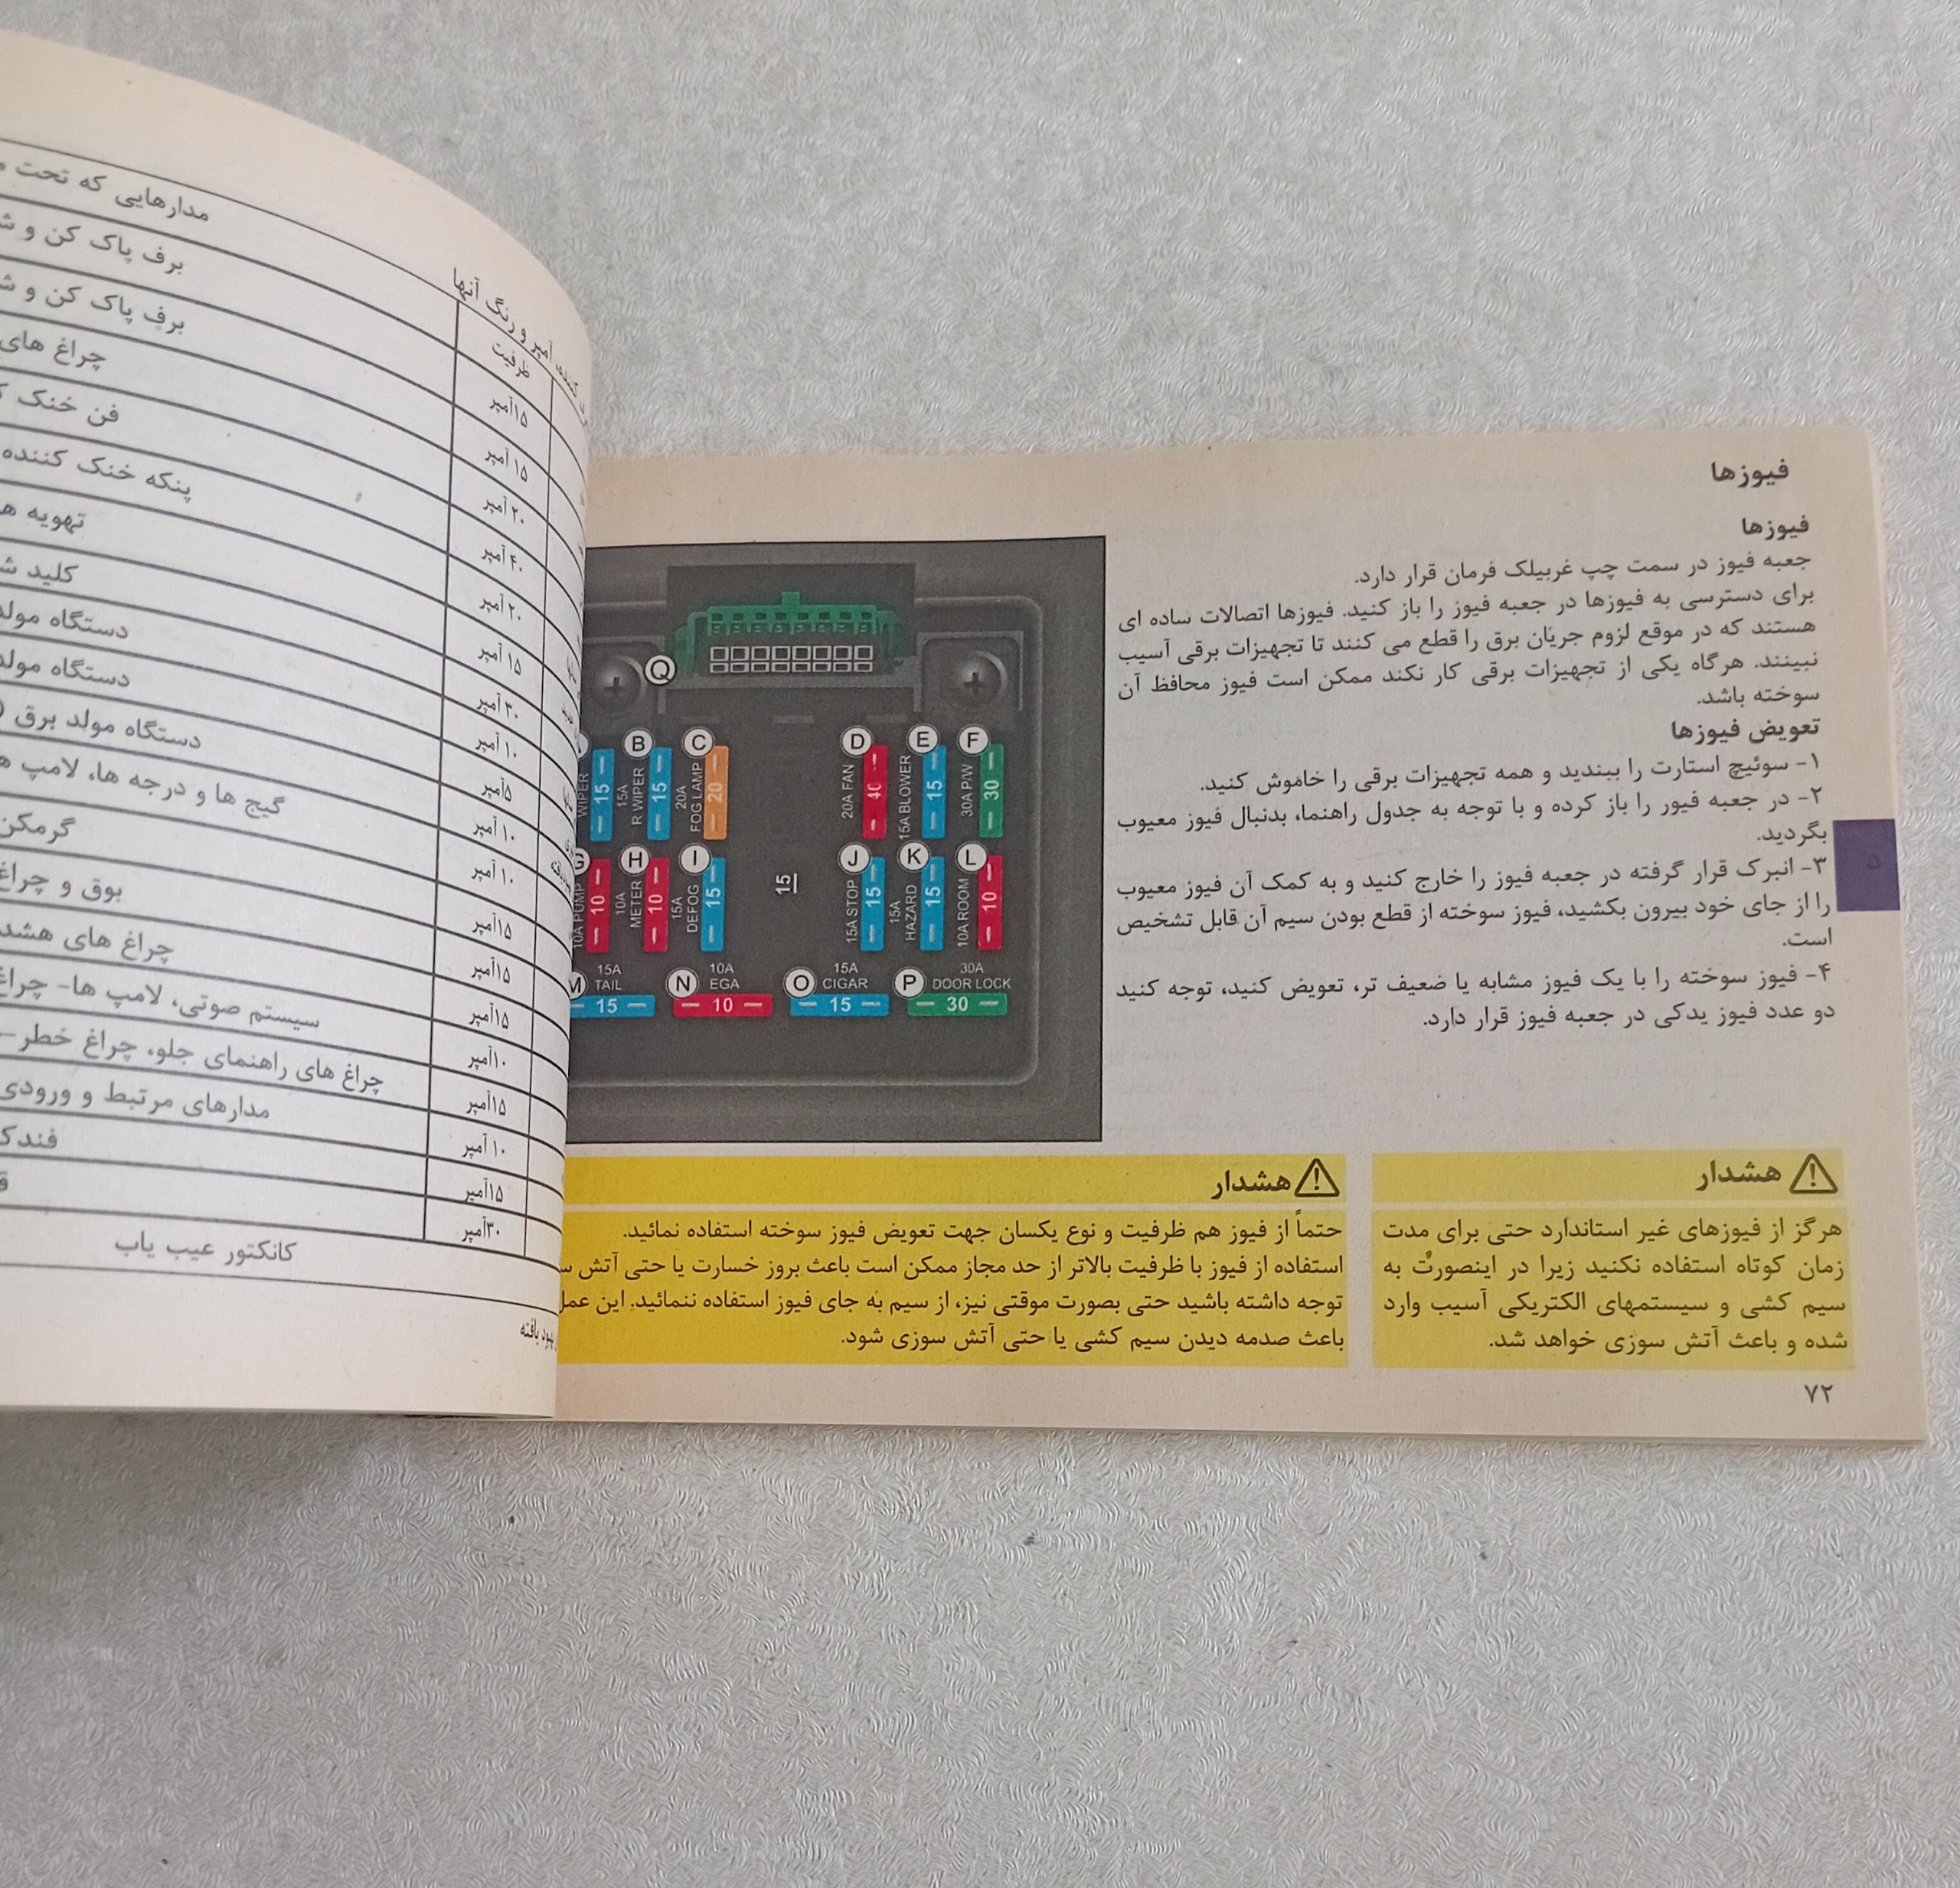 فیوزها
فیوزها
جعبه فیوز در سمت چپ غربیلک فرمان قرار دارد.
برای دسترسی به فیوزها در جعبه فیوز را باز کنید. فیوزها اتصالات ساده ای
هستند که در موقع لزوم جریان برق را قطع می کنند تا تجهیزات برقی آسیب
نبینند. هرگاه یکی از تجهیزات برقی کار نکند ممکن است فیوز محافظ آن
سوخته باشد.
تعویض فیوزها
۱- سوئیچ استارت را ببندید و همه تجهیزات برقی را خاموش کنید.
۲- در جعبه فیور را باز کرده و با توجه به جدول راهنما، بدنبال فیوز معیوب
بگردید.
۳- انبرک قرار گرفته در جعبه فیوز را خارج کنید و به کمک آن فیوز معیوب
را از جای خود بیرون بکشید، فیوز سوخته از قطع بودن سیم آن قابل تشخیص
است.
۴- فیوز سوخته را با یک فیوز مشابه یا ضعیف تر، تعویض کنید، توجه کنید
دو عدد فیوز یدکی در جعبه فیوز قرار دارد.
هشدار
هرگز از فیوزهای غیر استاندارد حتی برای مدت
زمان کوتاه استفاده نکنید زیرا در اینصورت به
سیم کشی و سیستمهای الکتریکی آسیب وارد
شده و باعث آتش سوزی خواهد شد.
۷۲
Q
B 15A R WIPER 15
WIPER 15
C 20A FOG LAMP 20
D 20A FAN 40
E 15A BLOWER 15
F 30A P/W 30
G 10A PUMP 10
H 10A METER 10
I 15A DEFOG 15
15
J 15A STOP 15
K 15A HAZARD 15
L 10A ROOM 10
M 15A TAIL 15
N 10A EGA 10
O 15A CIGAR 15
P 30A DOOR LOCK 30
هشدار
حتماً از فیوز هم ظرفیت و نوع یکسان جهت تعویض فیوز سوخته استفاده نمائید.
استفاده از فیوز با ظرفیت بالاتر از حد مجاز ممکن است باعث بروز خسارت یا حتی آتش
توجه داشته باشید حتی بصورت موقتی نیز، از سیم به جای فیوز استفاده ننمائید. این عمل
باعث صدمه دیدن سیم کشی یا حتی آتش سوزی شود.
آمپر و رنگ آنها
ظرفیت مدارهایی که تحت
۱۵آمپر برف پاک کن و
۱۵ آمپر برف پاک کن و
۲۰ آمپر چراغ های
۴۰ آمپر فن خنک
۲۰ آمپر پنکه خنک کننده
۱۵ آمپر تهویه
۳۰ آمپر کلید
۱۰ آمپر دستگاه مولد
۵آمپر دستگاه مولد
۱۰ آمپر دستگاه مولد برق
۱۰ آمپر گیج ها و درجه ها، لامپ
۱۵آمپر گرمکن
۱۵آمپر بوق و چراغ
۱۵آمپر چراغ های
۱۰آمپر سیستم صوتی، لامپ ها- چراغ
۱۵آمپر چراغ های راهنمای جلو، چراغ خطر-
۱۰ آمپر مدارهای مرتبط و ورودی
۱۵آمپر فندک
۳۰آمپر
کانکتور عیب یاب
یافته